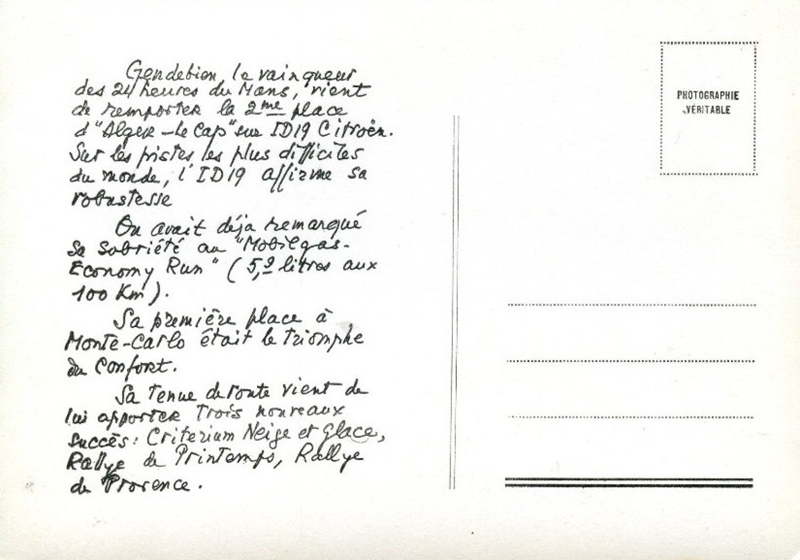 Gendebien, le vainqueur
des 24 heures du Mans, vient
de remporter la 2me place
d'"Alger-le Cap" sur ID19 Citroën.
Sur les pistes les plus difficiles
du monde, l'ID19 affirme sa
robustesse
On avait déja remarqué
sa sobriété au "Mobilgas-
Economy Run" (5,9 litres aux
100 Km).
Sa première place à
Monte-Carlo était le triomphe
du Confort.
Sa tenue de route vient de
lui apporter trois nouveaux
succès: Criterium Neige et Glace,
Rallye de Printemps, Rallye
de Provence.
PHOTOGRAPHIE
VÉRITABLE